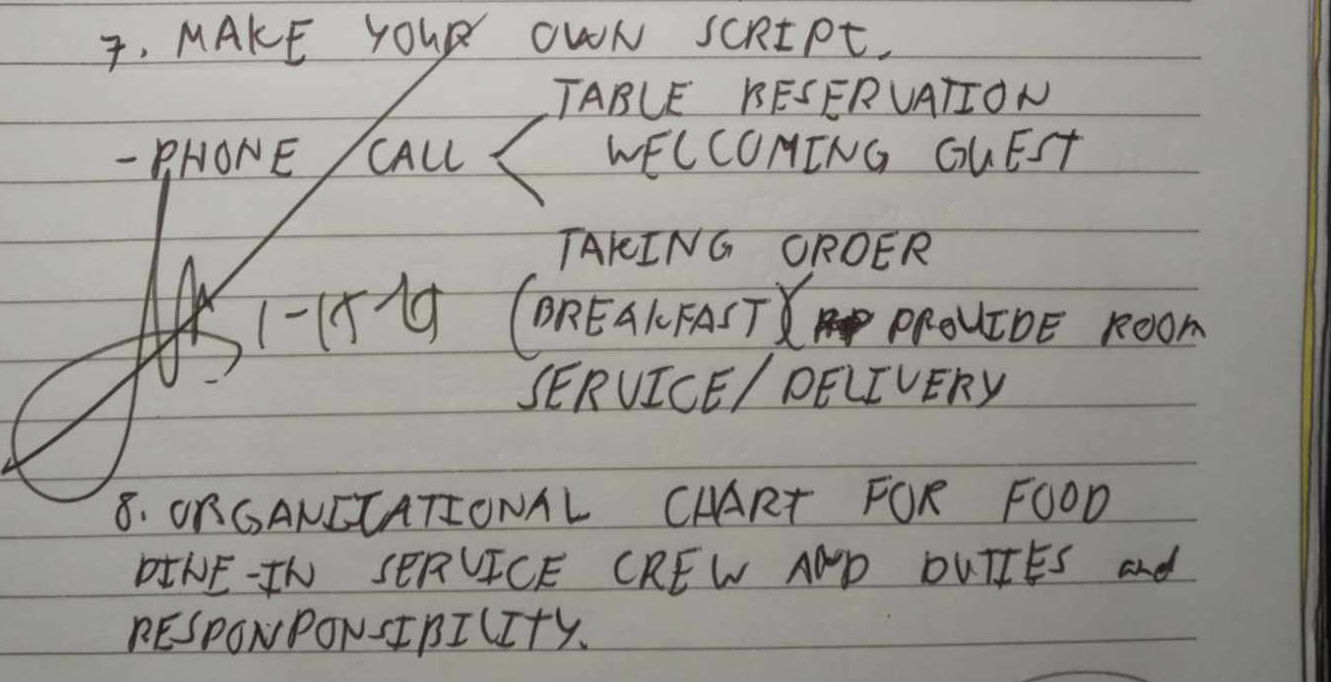 7. MAKE YOUR OWN SCRIPt.
TABLE RESERVATION
- PHONE CALL < WELCOMING GUEST
TAKING ORDER
(BREAKFAST) PROVIDE ROOM
SERVICE/DELIVERY
8. ORGANIZATIONAL CHART FOR FOOD
DINE-IN SERVICE CREW AND DUTIES and
RESPONPONSIBILITY.